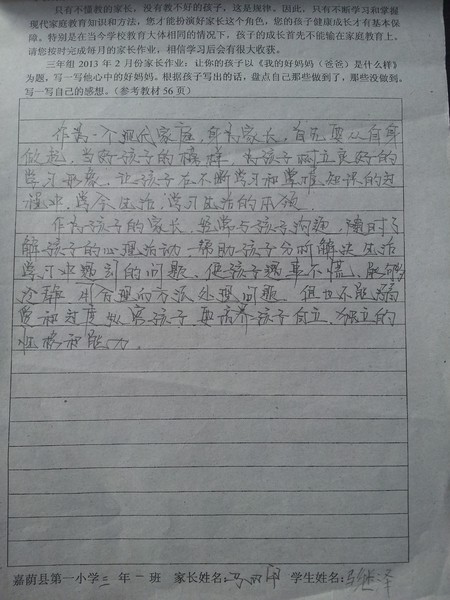 只有不懂教的家长，没有教不好的孩子，这是规律。因此，只有不断学习和掌握
现代家庭教育知识和方法，您才能扮演好家长这个角色，您的孩子健康成长才有基本保
障。特别是在当今学校教育大体相同的情况下，孩子的成长首先不能输在家庭教育上。
请您按时完成每月的家长作业，相信学习后会有很大收获。
三年组 2013 年 2 月份家长作业：让你的孩子以《我的好妈妈（爸爸）是什么样》
为题，写一写他心中的好妈妈。根据孩子写出的话，盘点自己那些做到了，那些没做到。
写一写自己的感想。（参考教材 56 页）
作为一个现代家庭，身为家长，首先要从自身
做起，当好孩子的榜样，为孩子树立良好的
学习形象，让孩子在不断学习和掌握知识的过
程中，学会生活，学习生活的本领。
作为孩子的家长，经常与孩子沟通，随时了
解孩子的心理活动，帮助孩子分析解决生活
学习中遇到的问题，使孩子遇事不慌，能够
冷静，用合理的方法处理问题，但也不能溺
爱和过度 孩子，要培养孩子自立，独立的
性格和能力。
嘉荫县第一小学三 年 一 班 家长姓名：马 学生姓名：